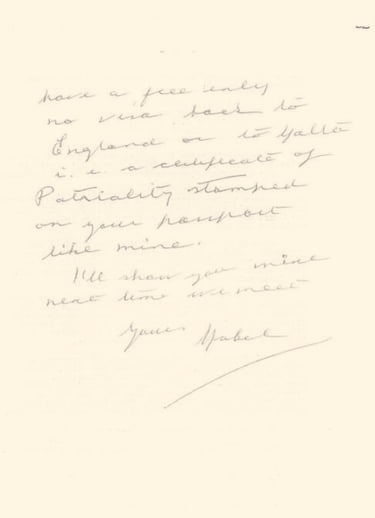 have a free entry
no visa back to
England or to Malta
i. e. a certificate of
Patriality stamped
on your passport
like mine.
I'll show you mine
next time we meet
Yours Mabel